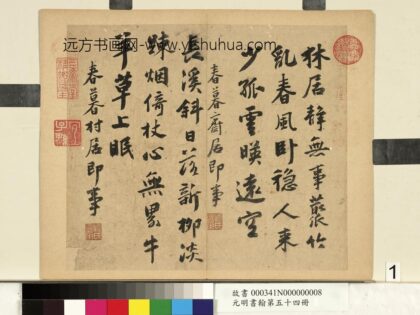 远方书画网-www.yfshuhua.com
林居靜無事叢竹
亂春風臥穩人來
少孤雲暎遠空
春暮齋居即事
長溪斜日落新柳淡
踈烟倚杖心無累牛
羊草上眠
春暮村居即事
1
故書 000341N000000008
元明書翰第五十四冊